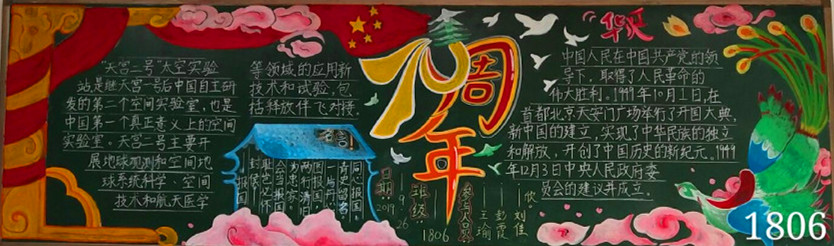 "天宫二号"太空实验
站是继天宫一号后中国自主研
发的第二个空间实验室,也是
中国第一个真正意义上的空间
实验室。天宫二号主要开
展地球观测和空间地
球系统科学、空间
技术和航天医学
等领域的应用新
技术和试验,包
括释放伴飞对接。
名言
70周年
日期
2019
9
26
班级
1806
王瑜
彭霞
刘佳
华诞
中国人民在中国共产党的领
导下,取得了人民革命的
伟大胜利。1949年10月1日,在
首都北京天安门广场举行了开国大典,
新中国的建立,实现了中华民族的独立
和解放,开创了中国历史的新纪元。1949
年12月3日中央人民政府委
员会的建议并成立。
1806